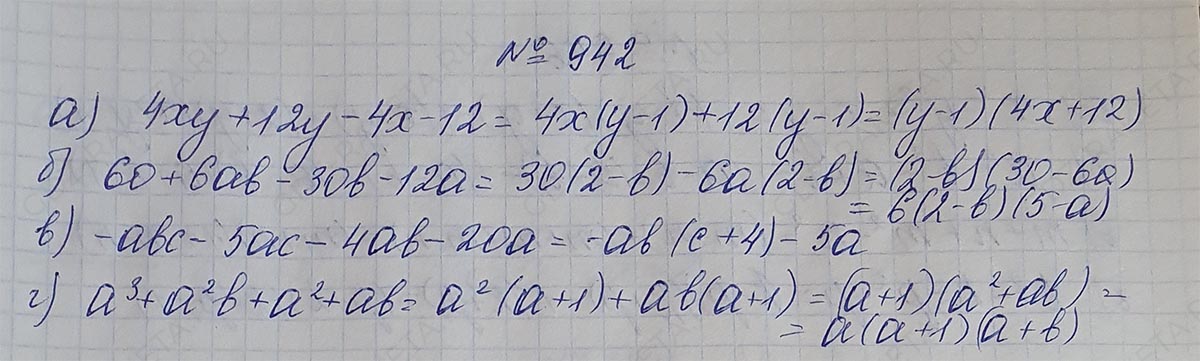 № 942
а) 4xy + 12y - 4x - 12 = 4x(y-1) + 12(y-1) = (y-1)(4x+12)
б) 60 + 6ab - 30b - 12a = 30(2-b) - 6a(2-b) = (2-b)(30-6a)
= 6(2-b)(5-a)
в) -abc - 5ac - 4ab - 20a = -ab(c+4) - 5a
г) a³ + a²b + a² + ab = a²(a+1) + ab(a+1) = (a+1)(a²+ab) =
= a(a+1)(a+b)